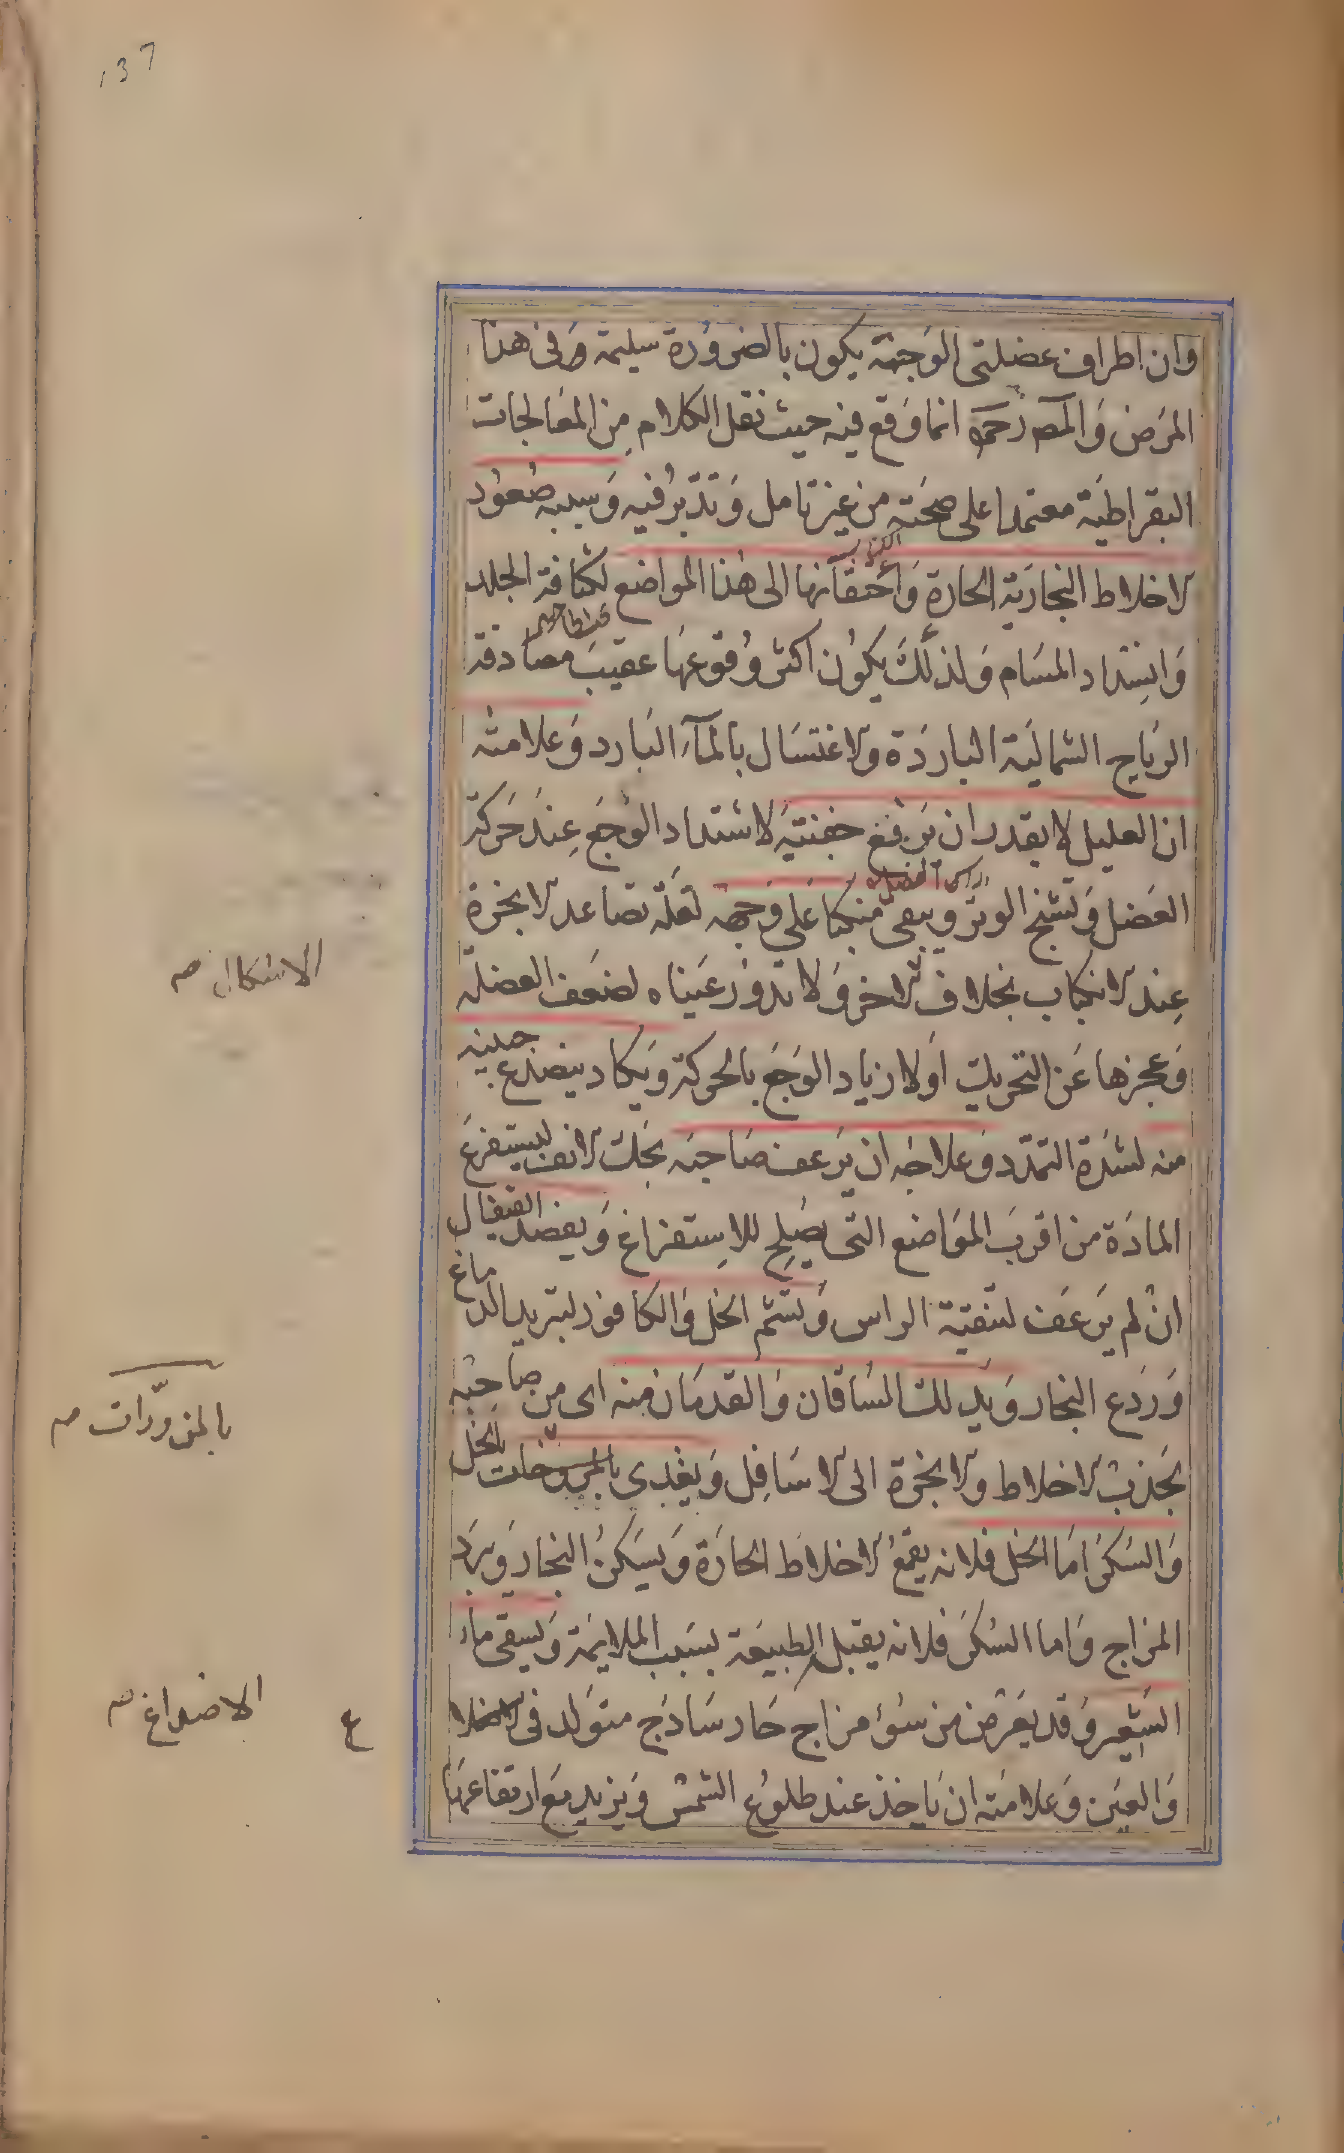 137
وان اطراف عضلتى الوجهة يكون بالضرورة سليمة وفى هذا
المرض والمصه رحمه انما وقع فيه حيث نقل الكلام من المعالجات
البقراطية معتمدا على صحته من غير تامل وتدبر فيه وسببه صعود
الاخلاط البخارية الحارة واحتقانها الى هذا المواضع لكثافة الجلد
وانسداد المسام ولذلك يكون اكثر وقوعها عقيب مصادقة
الرياح الشمالية الباردة والاغتسال بالماء البارد وعلامته
ان العليل لا يقدر ان يرفع جفنيه لاشتداد الوجع عند حركة
العضل وتشنج الوتر ويبقى منكبا على وجهه لقلة تصاعد الابخرة
عند الانكباب بخلاف الاخر ولا تدور عيناه لضعف العضلة
الاشكال صه
وعجزها عن التحريك اولازياد الوجع بالحركة ويكاد ينصدع جبينه
منه لشدة التمدد وعلاجه ان يرعف صاحبه بحك الانف ليستفرغ
المادة من اقرب المواضع التى يصلح للاستفراغ ويفصد القيفال
ان لم يرعف لتنقية الراس ويشم الخل والكافور لتبريد الدماغ
وردع البخار ويدلك الساقان والقدمان منه اى من صاحبه
بالمزورات صه
بجذب الاخلاط والابخرة الى الاسافل ويغذى بالخل
والسكر اما الخل فلانه يقمع الاخلاط الحارة ويسكن البخار ويبرد
المزاج واما السكر فلانه يقبل الطبيعة بسبب الملايمة ويسقى ماء
الشعير وقد يعرض من سوء مزاج حار ساذج متولد فى
الاصداغ صه
ع
والعين وعلامته ان ياخذ عند طلوع الشمس ويزيد مع ارتفاعها